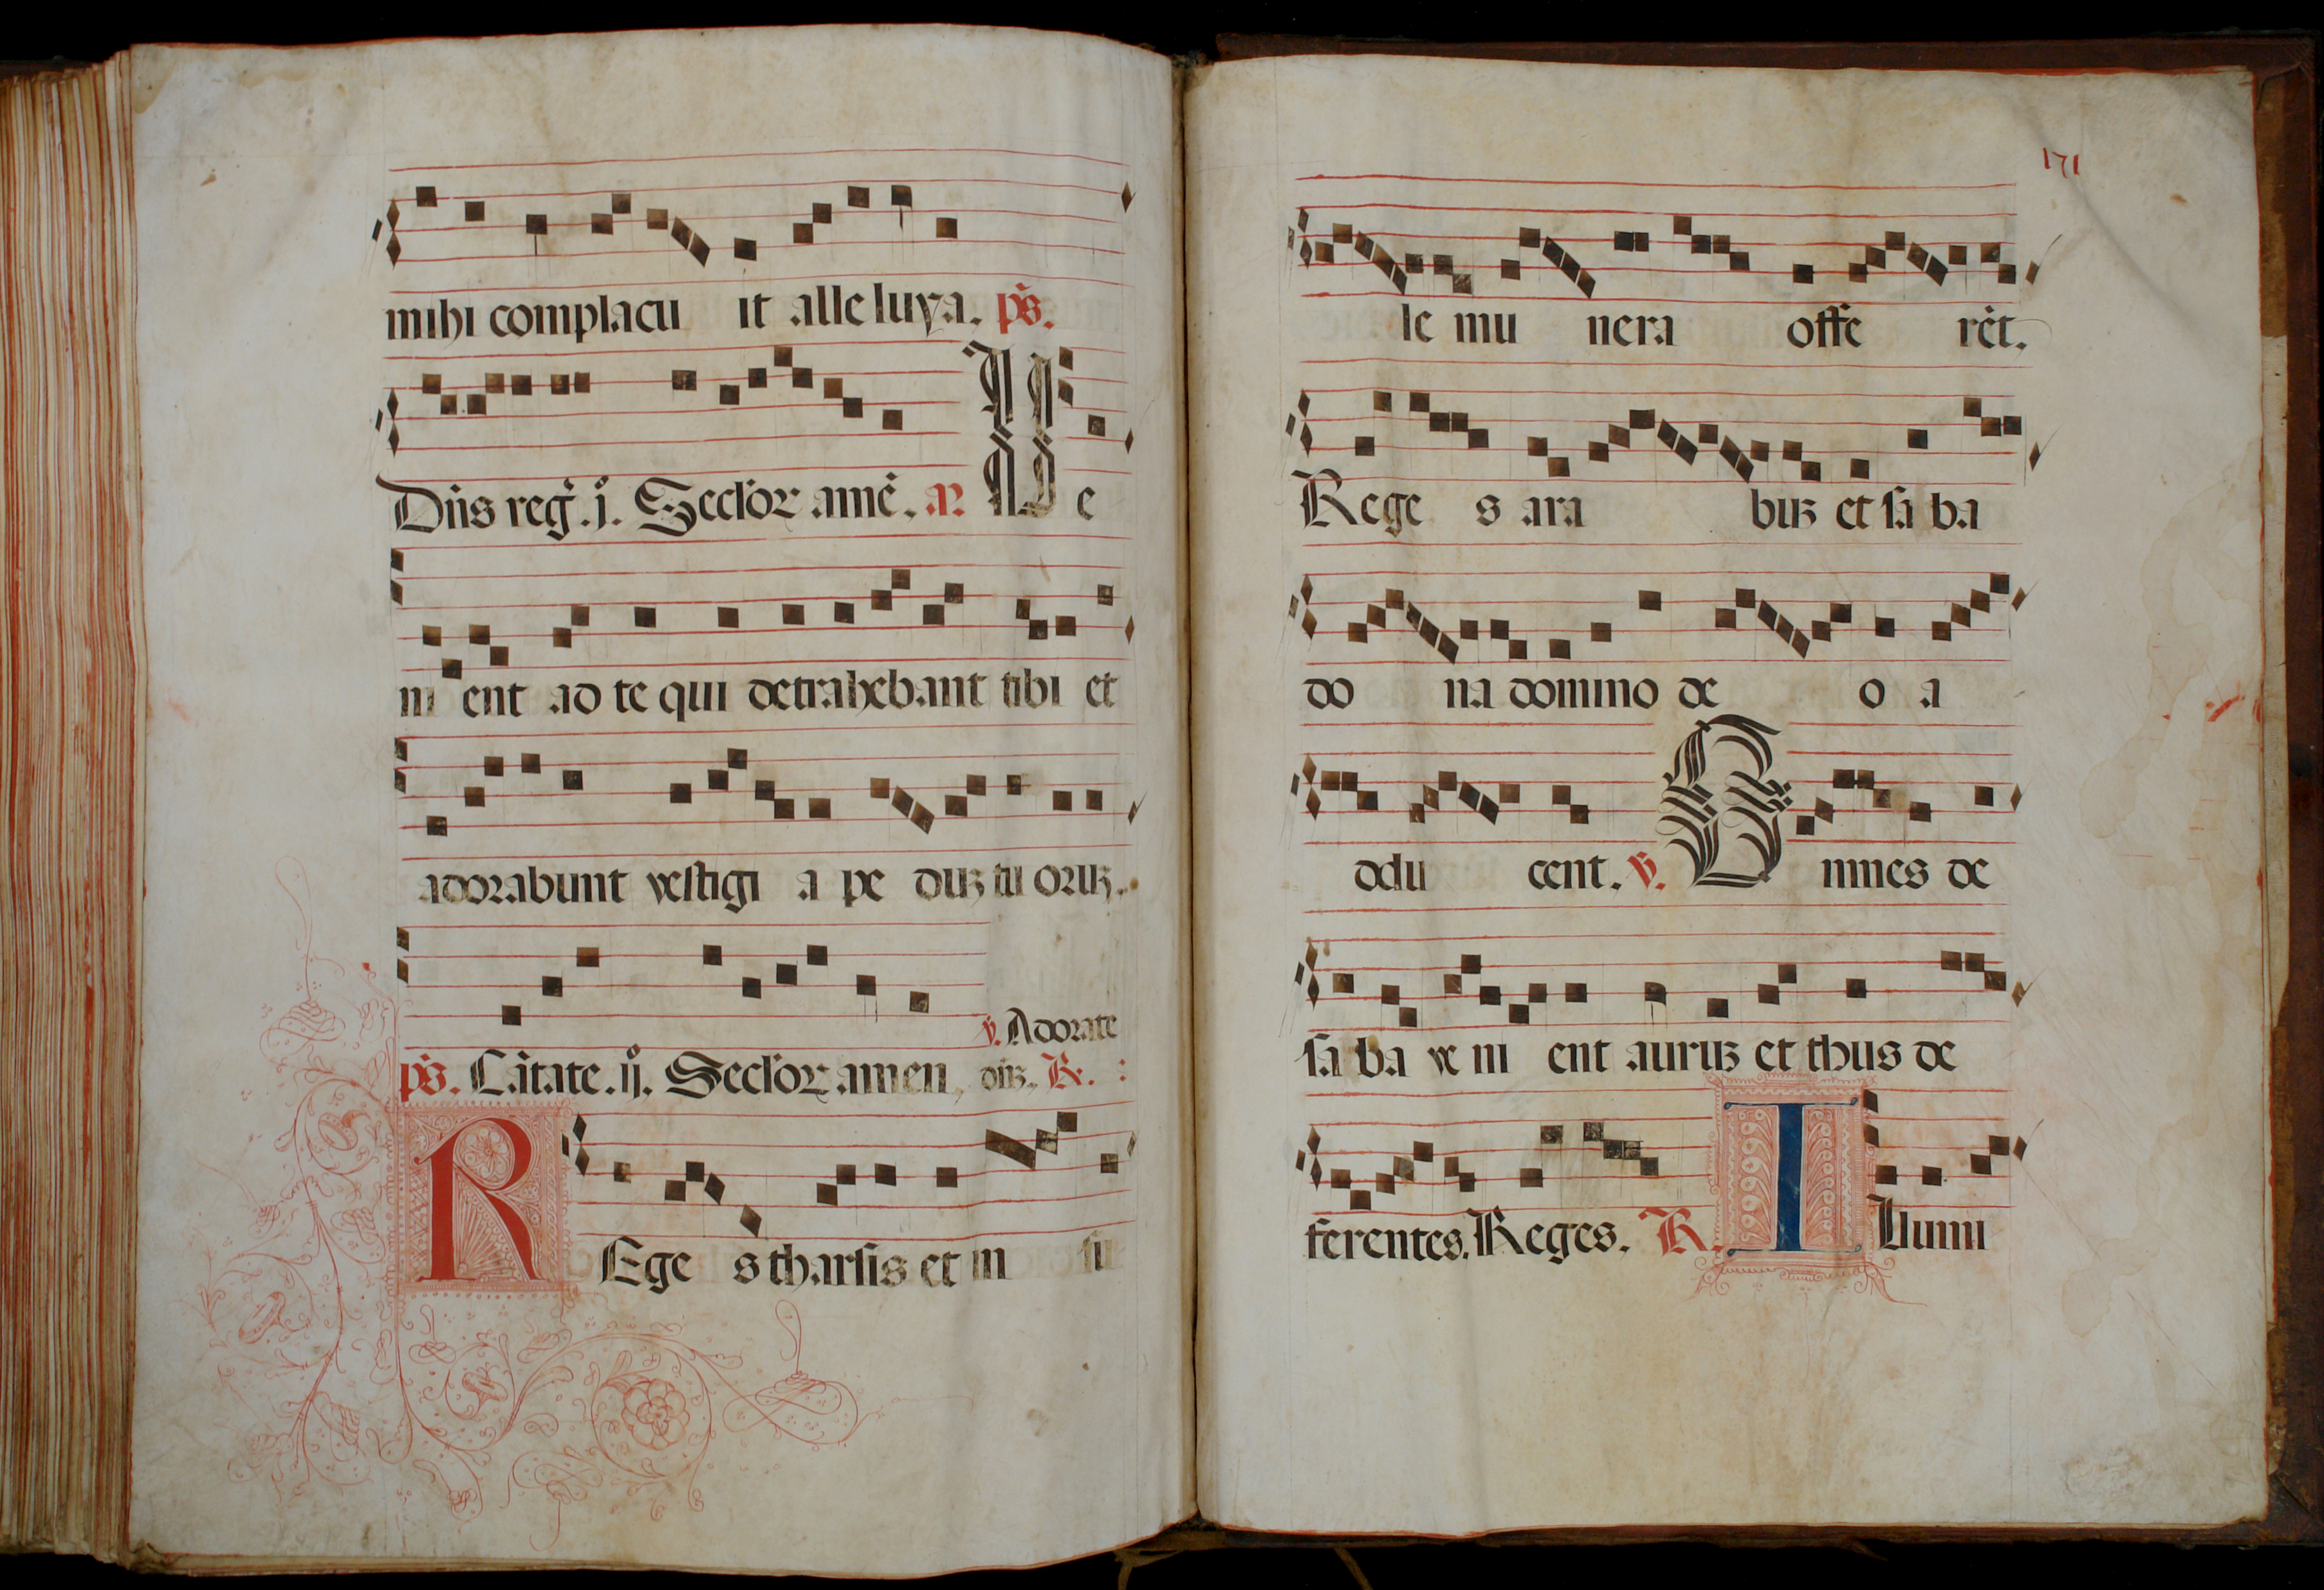 mihi complacu it alle luya. ps.
Dñs reg̃. j. Seclor amẽ. añ. Ve
ni ent ad te qui detrahebant tibi et
adorabunt vestigi a pe duꝫ tu oruꝫ.
℣. Adorate
ps. Cãtate. ij. Seclor amen, dñꝫ. ℟. :
REge s tharsis et in su
171
le mu nera offe rẽt.
Rege s ara buꝫ et sa ba
do na domino de o a
ddu cent. ℣. Omnes de
sa ba ve ni ent auruꝫ et thus de
ferentes. Reges. ℟. ILlumi